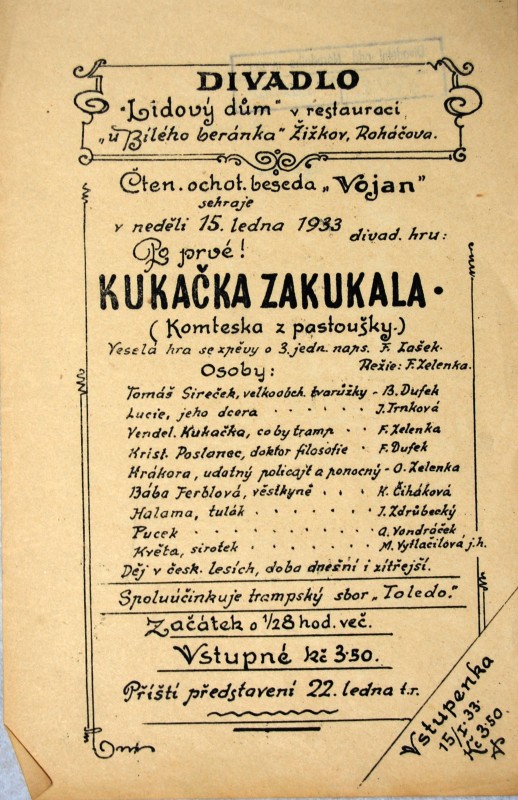 DIVADLO
"Lidový dům" v restauraci
„u Bílého beránka" Žižkov, Roháčova.
Čten. ochot. beseda „Vojan"
sehraje
v neděli 15. ledna 1933 divad. hru:
Po prvé!
KUKAČKA ZAKUKALA.
(Komteska z pastoušky.)
Veselá hra se zpěvy o 3. jedn. naps. F. Zašek.
Osoby: Režie: F. Zelenka.
Tomáš Sireček, velkoobch. tvarůžky - B. Dufek
Lucie, jeho dcera . . . . . . J. Trnková
Vendel. Kukačka, co by tramp . . F. Zelenka
Krist. Poslanec, doktor filosofie . F. Dufek
Krákora, udatný policajt a ponocný - O. Zelenka
Bába Ferblová, věstkyně . . . K. Čiháková
Halama, tulák . . . . . . J. Zdrůbecký
Pucek . . . . . . . . . A. Vondráček
Květa, sirotek . . . . . . . M. Vytlačilová j. h.
Děj v česk. lesích, doba dnešní i zítřejší.
Spoluúčinkuje trampský sbor „Toledo."
Začátek o 1/2 8 hod. več.
Vstupné Kč 3·50.
Příští představení 22. ledna t. r.
Vstupenka
15/I. 33.
Kč 3·50